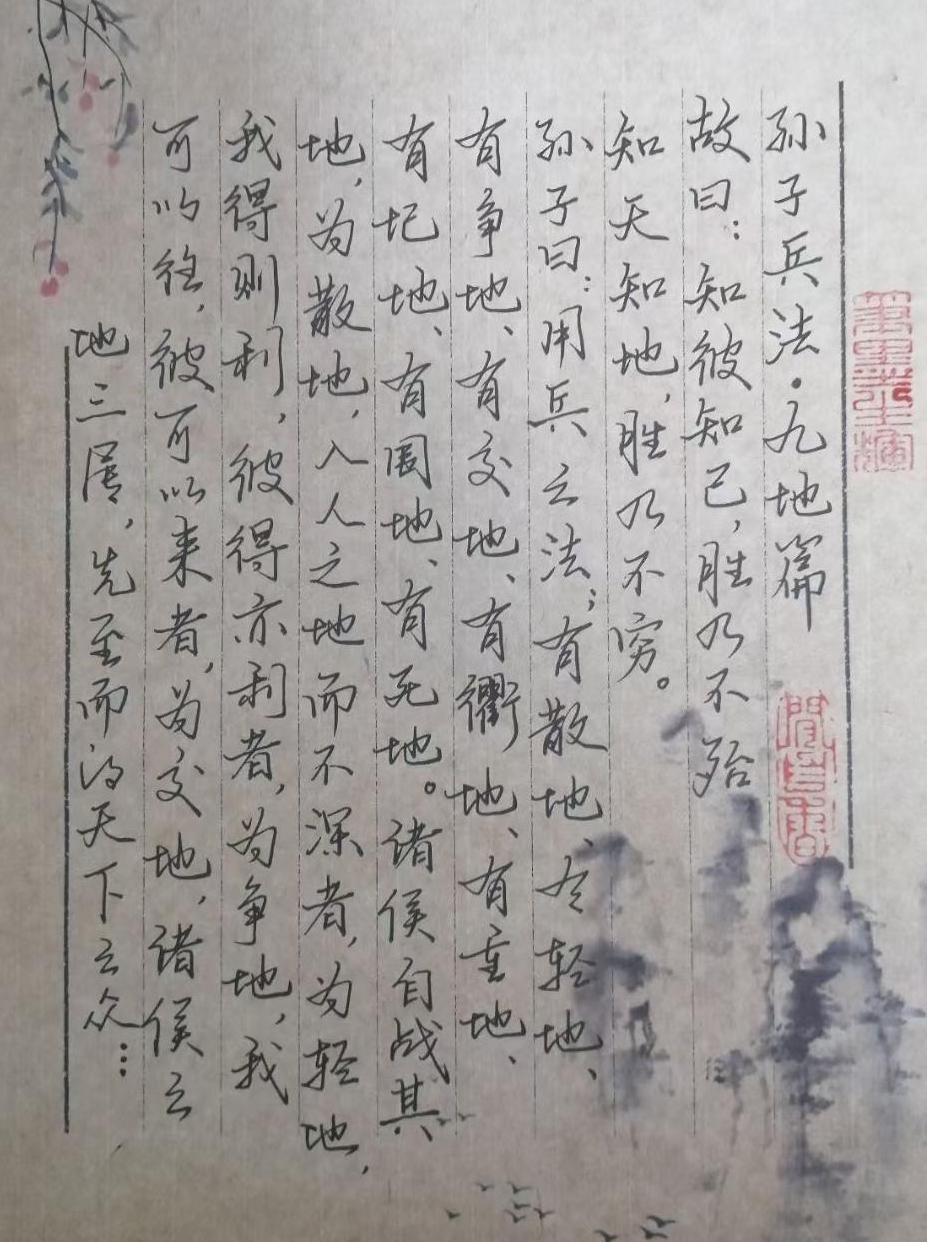 孙子兵法·九地篇
故曰：知彼知己，胜乃不殆
知天知地，胜乃不穷。
孙子曰：用兵之法；有散地、有轻地、
有争地、有交地、有衢地、有重地、
有圮地、有围地、有死地。诸侯自战其
地，为散地，入人之地而不深者，为轻地，
我得则利，彼得亦利者，为争地，我
可以往，彼可以来者，为交地，诸侯之
地三属，先至而得天下之众…